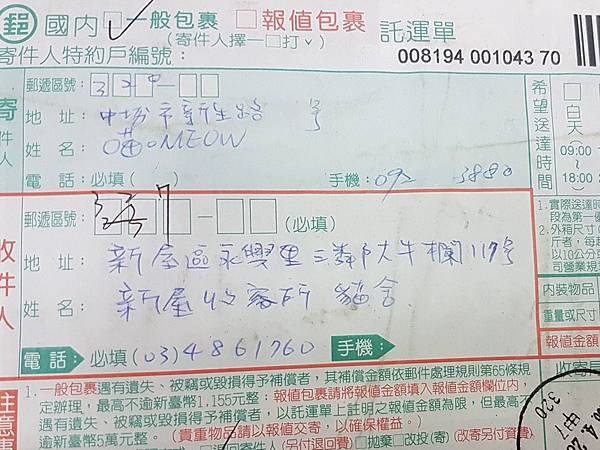 郵 國內 ☑一般包裹 □報值包裹 託運單
(寄件人擇一□打ˇ)
寄件人特約戶編號：
008194 001043 70
寄件人
郵遞區號：
地 址：中壢市新生路 號
姓 名：喵。MEOW
電 話：必填( ) 手機：092 3880
希望送達時間
□
白天
(09:00
～
18:00
收件人
郵遞區號： 327 － (必填)
地 址：新屋區永興里三鄰大牛欄117號
姓 名：新屋收容所 貓舍
電話：必填(03)4861760 手機：
1.實際送達時
段為第一
2.外箱尺寸
斤者，每
以10公分
司營業規
內裝物品
重量或尺寸
報值金額
收寄局
注意事
1.一般包裹遇有遺失、被竊或毀損得予補償者，其補償金額依郵件處理規則第65條規
定辦理，最高不逾新臺幣1,155元整；報值包裹請將報值金額填入報值金額欄位內，
遇有遺失、被竊或毀損得予補償者，以託運單上註明之報值金額為限，但最高不
逾新臺幣5萬元整。(貴重物品請以報值交寄，以確保權益。)
退回寄件人(另付退回費)□拋棄□改投(寄)(改寄另付資費)
320